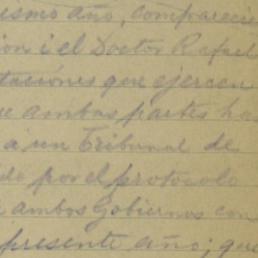 ismo año, comparecie
ion i el Doctor Rafael
taciones que ejercen
ue ambas partes ha
a un Tribunal de
do por el protocolo
ambos Gobiernos con
presente año; que